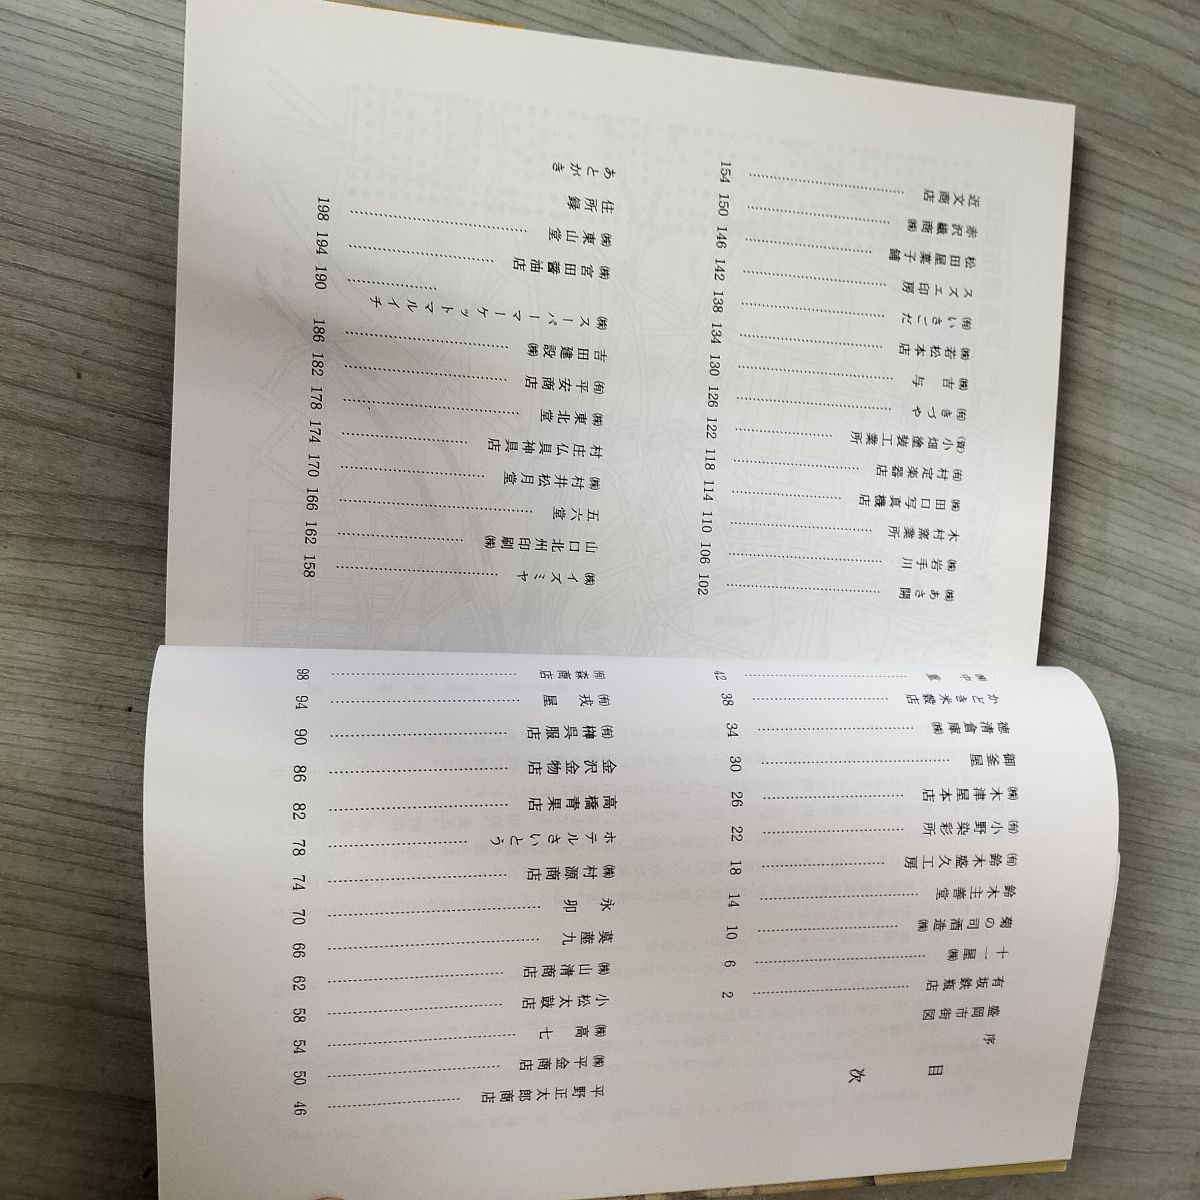 目次
序
盛岡市街図
有坂鉄瓶店……2
十一屋㈱……6
菊の司酒造㈱……10
鈴木主善堂……14
㈲鈴木盛久工房……18
㈲小野染彩所……22
㈱木津屋本店……26
御釜屋……30
徳清倉庫㈱……34
かどき米穀店……38
……42
平野正太郎商店……46
㈱平金商店……50
㈱高七……54
小松太鼓店……58
㈱山清商店……62
茣蓙九……66
永卯……70
㈱村源商店……74
ホテルさいとう……78
高橋青果店……82
金沢金物店……86
㈲榊呉服店……90
㈲戎屋……94
㈲森商店……98
㈱あさ開……102
㈱岩手川……106
木村窯業所……110
㈱田口写真機店……114
㈲村定楽器店……118
㈾小畑塗装工業所……122
㈲きづや……126
㈱吉与……130
㈱若松本店……134
㈲いさごだ……138
スズエ印房……142
松田屋菓子舗……146
赤沢繊商㈱……150
近文商店……154
㈱イズミヤ……158
山口北州印刷㈱……162
五六堂……166
㈱村井松月堂……170
村庄仏具神具店……174
㈱東北堂……178
㈲平安商店……182
吉田建設㈱……186
㈱スーパーマーケットマルイチ……190
㈱宮田醤油店……194
㈱東山堂……198
住所録
あとがき